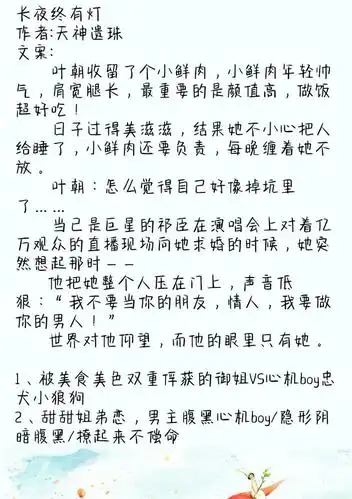 长夜终有灯
作者:天神遗珠
文案:
叶朝收留了个小鲜肉，小鲜肉年轻帅
气，肩宽腿长，最重要的是颜值高，做饭
超好吃！
日子过得美滋滋，结果她不小心把人
给睡了，小鲜肉还要负责，每晚缠着她不
放。
叶朝：怎么觉得自己好像掉坑里
了……
当己是巨星的祁臣在演唱会上对着亿
万观众的直播现场向她求婚的时候，她突
然想起那时——
他把她整个人压在门上，声音低
狠：“我不要当你的朋友，情人，我要做
你的男人！”
世界对他仰望，而他的眼里只有她。
1、被美食美色双重俘获的御姐VS心机boy忠
犬小狼狗
2、甜甜姐弟恋，男主腹黑心机boy/隐形阴
暗腹黑/撩起来不偿命